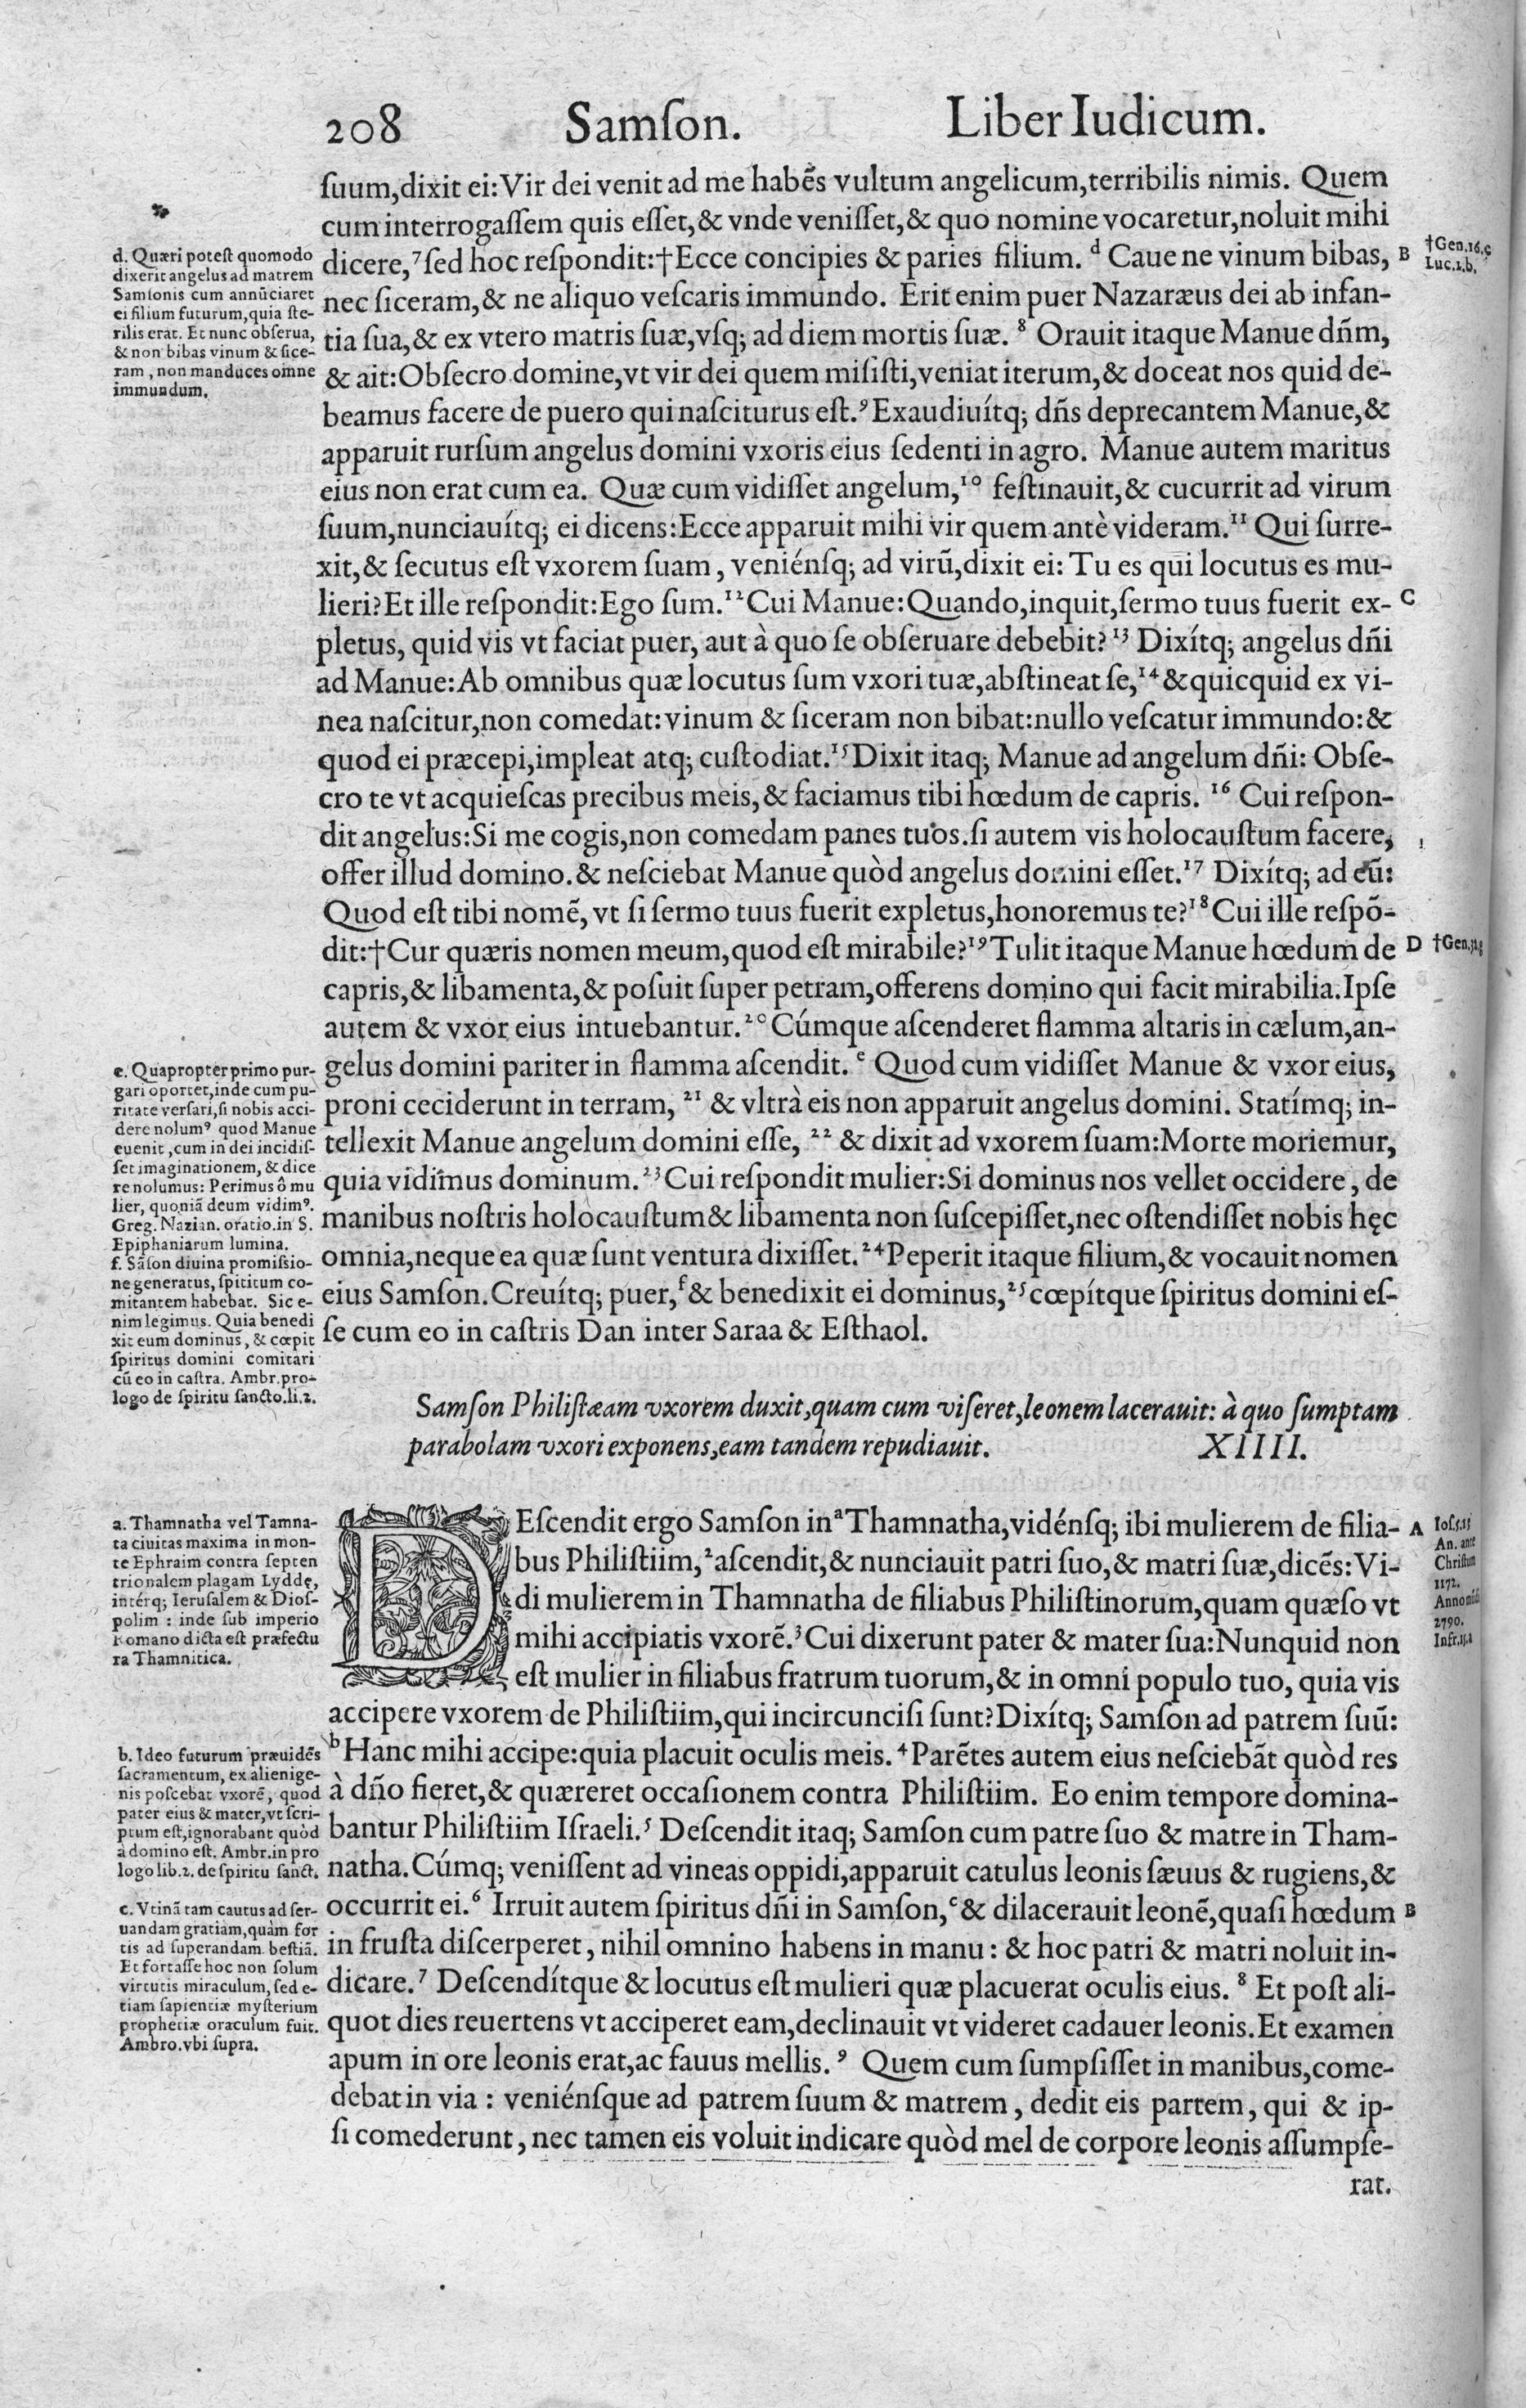 208 Samſon. Liber Iudicum.
ſuum,dixit ei:Vir dei venit ad me habẽs vultum angelicum,terribilis nimis. Quem
cum interrogaſſem quis eſſet,& vnde veniſſet,& quo nomine vocaretur,noluit mihi
dicere,⁷ſed hoc reſpondit:†Ecce concipies & paries filium. ᵈ Caue ne vinum bibas, B
nec ſiceram,& ne aliquo veſcaris immundo. Erit enim puer Nazaræus dei ab infan-
tia ſua,& ex vtero matris ſuæ,vſq; ad diem mortis ſuæ.⁸ Orauit itaque Manue dñm,
& ait:Obſecro domine,vt vir dei quem miſiſti,veniat iterum,& doceat nos quid de-
beamus facere de puero qui naſciturus eſt.⁹Exaudiuítq; dñs deprecantem Manue,&
apparuit rurſum angelus domini vxoris eius ſedenti in agro. Manue autem maritus
eius non erat cum ea. Quæ cum vidiſſet angelum,¹⁰ feſtinauit,& cucurrit ad virum
ſuum,nunciauítq; ei dicens:Ecce apparuit mihi vir quem antè videram.¹¹ Qui ſurre-
xit,& ſecutus eſt vxorem ſuam, veniénſq; ad virũ,dixit ei: Tu es qui locutus es mu-
lieri?Et ille reſpondit:Ego ſum.¹²Cui Manue:Quando,inquit,ſermo tuus fuerit ex- C
pletus, quid vis vt faciat puer, aut à quo ſe obſeruare debebit?¹³ Dixítq; angelus dñi
ad Manue:Ab omnibus quæ locutus ſum vxori tuæ,abſtineat ſe,¹⁴&quicquid ex vi-
nea naſcitur,non comedat:vinum & ſiceram non bibat:nullo veſcatur immundo:&
quod ei præcepi,impleat atq; cuſtodiat.¹⁵Dixit itaq; Manue ad angelum dñi: Obſe-
cro te vt acquieſcas precibus meis,& faciamus tibi hœdum de capris. ¹⁶ Cui reſpon-
dit angelus:Si me cogis,non comedam panes tuos.ſi autem vis holocauſtum facere,
offer illud domino.& neſciebat Manue quòd angelus domini eſſet.¹⁷ Dixítq; ad eũ:
Quod eſt tibi nomẽ, vt ſi ſermo tuus fuerit expletus,honoremus te?¹⁸Cui ille reſpõ-
dit:†Cur quæris nomen meum,quod eſt mirabile?¹⁹Tulit itaque Manue hœdum de D
capris,& libamenta,& poſuit ſuper petram,offerens domino qui facit mirabilia.Ipſe
autem & vxor eius intuebantur.²⁰Cúmque aſcenderet flamma altaris in cælum,an-
gelus domini pariter in flamma aſcendit.ᵉ Quod cum vidiſſet Manue & vxor eius,
proni ceciderunt in terram, ²¹ & vltrà eis non apparuit angelus domini. Statímq; in-
tellexit Manue angelum domini eſſe, ²² & dixit ad vxorem ſuam:Morte moriemur,
quia vidimus dominum.²³Cui reſpondit mulier:Si dominus nos vellet occidere, de
manibus noſtris holocauſtum & libamenta non ſuſcepiſſet,nec oſtendiſſet nobis hęc
omnia,neque ea quæ ſunt ventura dixiſſet.²⁴Peperit itaque filium,& vocauit nomen
eius Samſon.Creuítq; puer,ᶠ& benedixit ei dominus,²⁵cœpítque ſpiritus domini eſ-
ſe cum eo in caſtris Dan inter Saraa & Eſthaol.
d. Quæri poteſt quomodo
dixerit angelus ad matrem
Samſonis cum annũciaret
ei filium futurum,quia ſte-
rilis erat. Et nunc obſerua,
& non bibas vinum & ſice-
ram, non manduces omne
immundum.
†Gen.16.c
Luc.1.b.
e. Quapropter primo pur-
gari oportet,inde cum pu-
ritate verſari,ſi nobis acci-
dere nolumꝰ quod Manue
euenit,cum in dei incidiſ-
ſet imaginationem, & dice
re nolumus: Perimus ô mu
lier, quoniã deum vidimꝰ.
Greg. Nazian. oratio.in S.
Epiphaniarum lumina.
f. Sãſon diuina promiſsio-
ne generatus, ſpititum co-
mitantem habebat. Sic e-
nim legimus. Quia benedi
xit eum dominus, & cœpit
ſpiritus domini comitari
cũ eo in caſtra. Ambr.pro-
logo de ſpiritu ſancto.li.2.
Samſon Philiſtæam vxorem duxit,quam cum viſeret,leonem lacerauit: à quo ſumptam
parabolam vxori exponens,eam tandem repudiauit. XIIII.
DEſcendit ergo Samſon inᵃThamnatha,vidénſq; ibi mulierem de filia- A
bus Philiſtiim,²aſcendit,& nunciauit patri ſuo,& matri ſuæ,dicẽs: Vi-
di mulierem in Thamnatha de filiabus Philiſtinorum,quam quæſo vt
mihi accipiatis vxorẽ.³Cui dixerunt pater & mater ſua:Nunquid non
eſt mulier in filiabus fratrum tuorum,& in omni populo tuo, quia vis
accipere vxorem de Philiſtiim,qui incircunciſi ſunt?Dixítq; Samſon ad patrem ſuũ:
ᵇHanc mihi accipe:quia placuit oculis meis.⁴Parẽtes autem eius neſciebãt quòd res
à dño fieret,& quæreret occaſionem contra Philiſtiim. Eo enim tempore domina-
bantur Philiſtiim Iſraeli.⁵ Deſcendit itaq; Samſon cum patre ſuo & matre in Tham-
natha.Cúmq; veniſſent ad vineas oppidi,apparuit catulus leonis ſæuus & rugiens,&
occurrit ei.⁶ Irruit autem ſpiritus dñi in Samſon,ᶜ& dilacerauit leonẽ,quaſi hœdum B
in fruſta diſcerperet, nihil omnino habens in manu: & hoc patri & matri noluit in-
dicare.⁷ Deſcendítque & locutus eſt mulieri quæ placuerat oculis eius.⁸ Et poſt ali-
quot dies reuertens vt acciperet eam,declinauit vt videret cadauer leonis.Et examen
apum in ore leonis erat,ac fauus mellis.⁹ Quem cum ſumpſiſſet in manibus,come-
debat in via: veniénſque ad patrem ſuum & matrem, dedit eis partem, qui & ip-
ſi comederunt, nec tamen eis voluit indicare quòd mel de corpore leonis aſſumpſe-
rat.
a. Thamnatha vel Tamna-
ta ciuitas maxima in mon-
te Ephraim contra ſepten
trionalem plagam Lyddę,
intérq; Ieruſalem & Dioſ-
polim: inde ſub imperio
Romano dicta eſt præfectu
ra Thamnitica.
b. Ideo futurum præuidẽs
ſacramentum, ex alienige-
nis poſcebat vxorẽ, quod
pater eius & mater,vt ſcri-
ptum eſt,ignorabant quòd
à domino eſt. Ambr.in pro
logo lib.2. de ſpiritu ſanct.
c. Vtinã tam cautus ad ſer-
uandam gratiam,quàm for
tis ad ſuperandam beſtiã.
Et fortaſſe hoc non ſolum
virtutis miraculum, ſed e-
tiam ſapientiæ myſterium
prophetiæ oraculum fuit.
Ambro.vbi ſupra.
†Gen.32.g
Ioſ.15
An. ante
Chriſtum
1172.
Anno
2790.
Infr.15.a